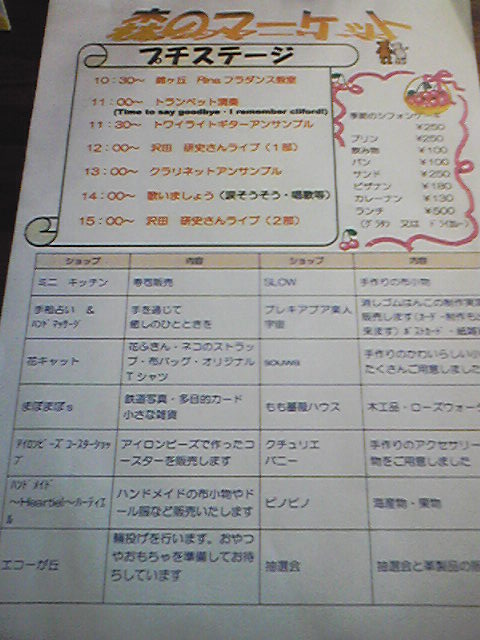 森のマーケット
プチステージ
10:30～ Rinsフラダンス教室
11:00～ トランペット演奏
(Time to say goodbye・I remember cliford!)
11:30～ トワイライトギターアンサンブル
12:00～ 沢田 研史さんライブ(1部)
13:00～ クラリネットアンサンブル
14:00～ 歌いましょう(涙そうそう・唱歌等)
15:00～ 沢田 研史さんライブ(2部)
季節のシフォンケーキ
¥250
プリン ¥250
飲み物 ¥100
パン ¥100
サンド ¥250
ピザナン ¥180
カレーナン ¥130
ランチ ¥500
又は
ショップ 内容 ショップ 内容
ミニ キッチン 寿司販売 SLOW 手作りの布小物
手相占い &
ハンドマッサージ
手を通じて
癒しのひとときを
プレキアプア楽人
宇宙
消しゴムはんこの制作実演
販売します(カード制作も
来ます)ポストカード・紙雑
花キャット
花ふきん・ネコのストラッ
プ・布バッグ・オリジナル
Tシャツ
souwa
手作りのかわいらしい小
たくさんご用意しました
まぽまぽs
鉄道写真・多目的カード
小さな雑貨
もも薔薇ハウス
木工品・ローズウォー
アイロンビーズコースターショッ
プ
アイロンビーズで作ったコ
ースターを販売します
クチュリエ
バニー
手作りのアクセサリー
物をご用意しました
ハンドメイド
～Heartiel～ハーティエ
ル
ハンドメイドの布小物やド
ール服など販売いたします
ピノピノ
海産物・果物
エコーが丘
輪投げを行います。おやつ
やおもちゃを準備してお待
ちしています
抽選会
抽選会と革製品の販